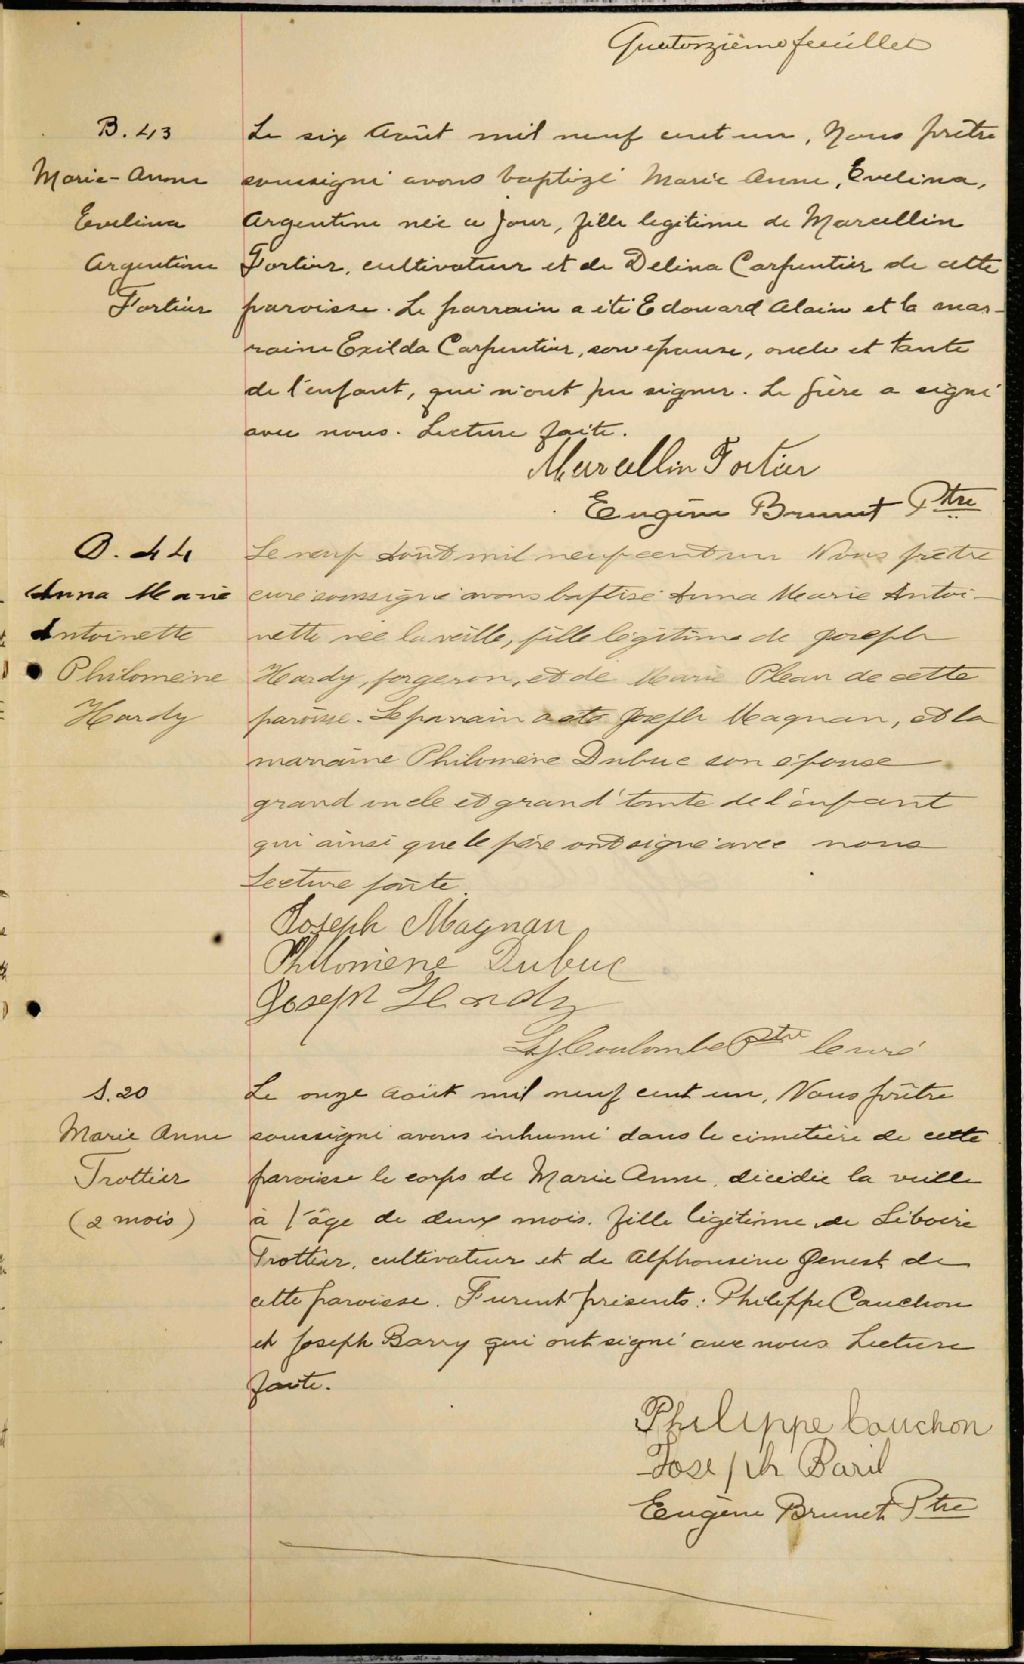 Quatorzième feuillet
B. 43
Marie-Anne
Evelina
Argentine
Fortier
Le six Août mil neuf cent un, Nous prêtre
soussigné avons baptizé Marie Anne, Evelina,
Argentine née ce jour, fille legitime de Marcellin
Fortier, cultivateur et de Delina Carpentier de cette
paroisse. Le parrain a été Edouard Alain et la mar-
raine Exilda Carpentier, son epouse, oncle et tante
de l'enfant, qui n'ont pu signer. Le père a signé
avec nous. Lecture faite.
Marcellin Fortier
Eugène Brunet Ptre
B. 44
Anna Marie
Antoinette
Philomène
Hardy
Le neuf Août mil neuf cent un Nous prêtre
curé soussigné avons baptisé Anna Marie Antoi-
nette née la veille, fille légitime de Joseph
Hardy, forgeron, et de Marie Pleau de cette
paroisse. Le parrain a été Joseph Magnan, et la
marraine Philomène Dubuc son épouse
grand oncle et grand'tante de l'enfant
qui ainsi que le père ont signé avec nous
Lecture faite.
Joseph Magnan
Philomène Dubuc
Joseph Hardy
Coulombe Ptre Curé
S. 20
Marie Anne
Trottier
(2 mois)
Le onze août mil neuf cent un, Nous prêtre
soussigné avons inhumé dans le cimetière de cette
paroisse le corps de Marie Anne, décédée la veille
à l'âge de deux mois, fille légitime de Liboire
Trottier, cultivateur et de Alphonsine Genest de
cette paroisse. Furent présents: Philippe Cauchon
et Joseph Barry qui ont signé avec nous Lecture
faite.
Philippe Cauchon
Joseph Baril
Eugène Brunet Ptre